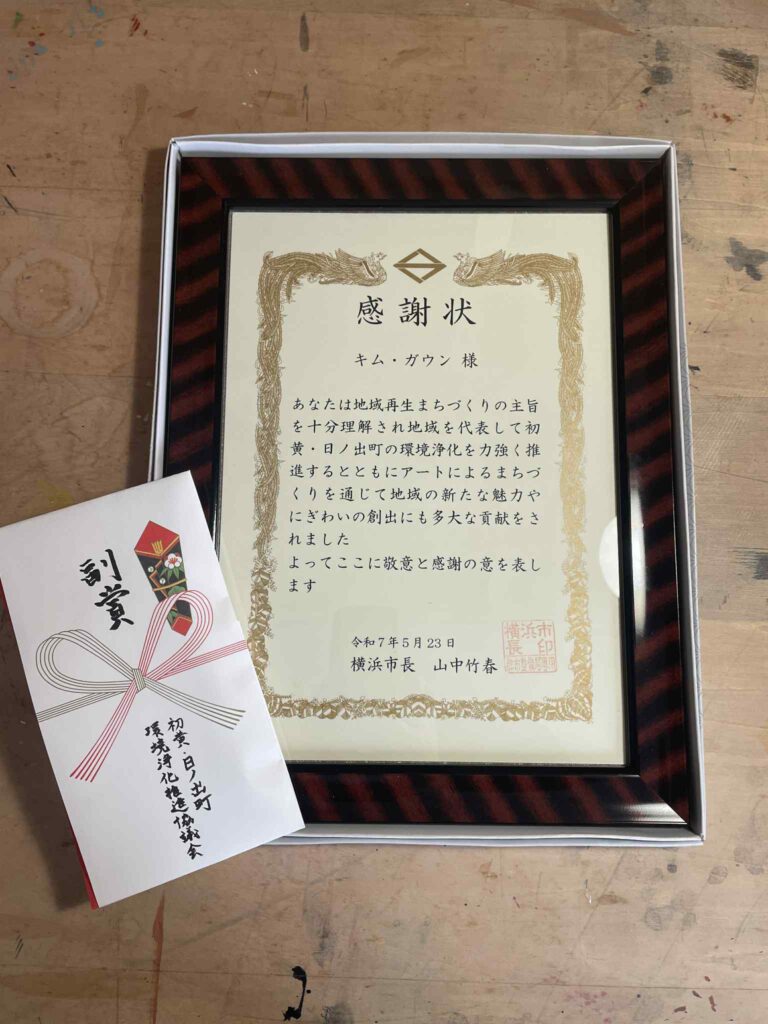 感謝状
キム・ガウン 様
あなたは地域再生まちづくりの主旨
を十分理解され地域を代表して初
黄・日ノ出町の環境浄化を力強く推
進するとともにアートによるまちづ
くりを通じて地域の新たな魅力や
にぎわいの創出にも多大な貢献をさ
れました
よってここに敬意と感謝の意を表し
ます
令和7年5月23日
横浜市長 山中竹春
横浜市
長印
副賞
初黄・日ノ出町
環境浄化推進協議会